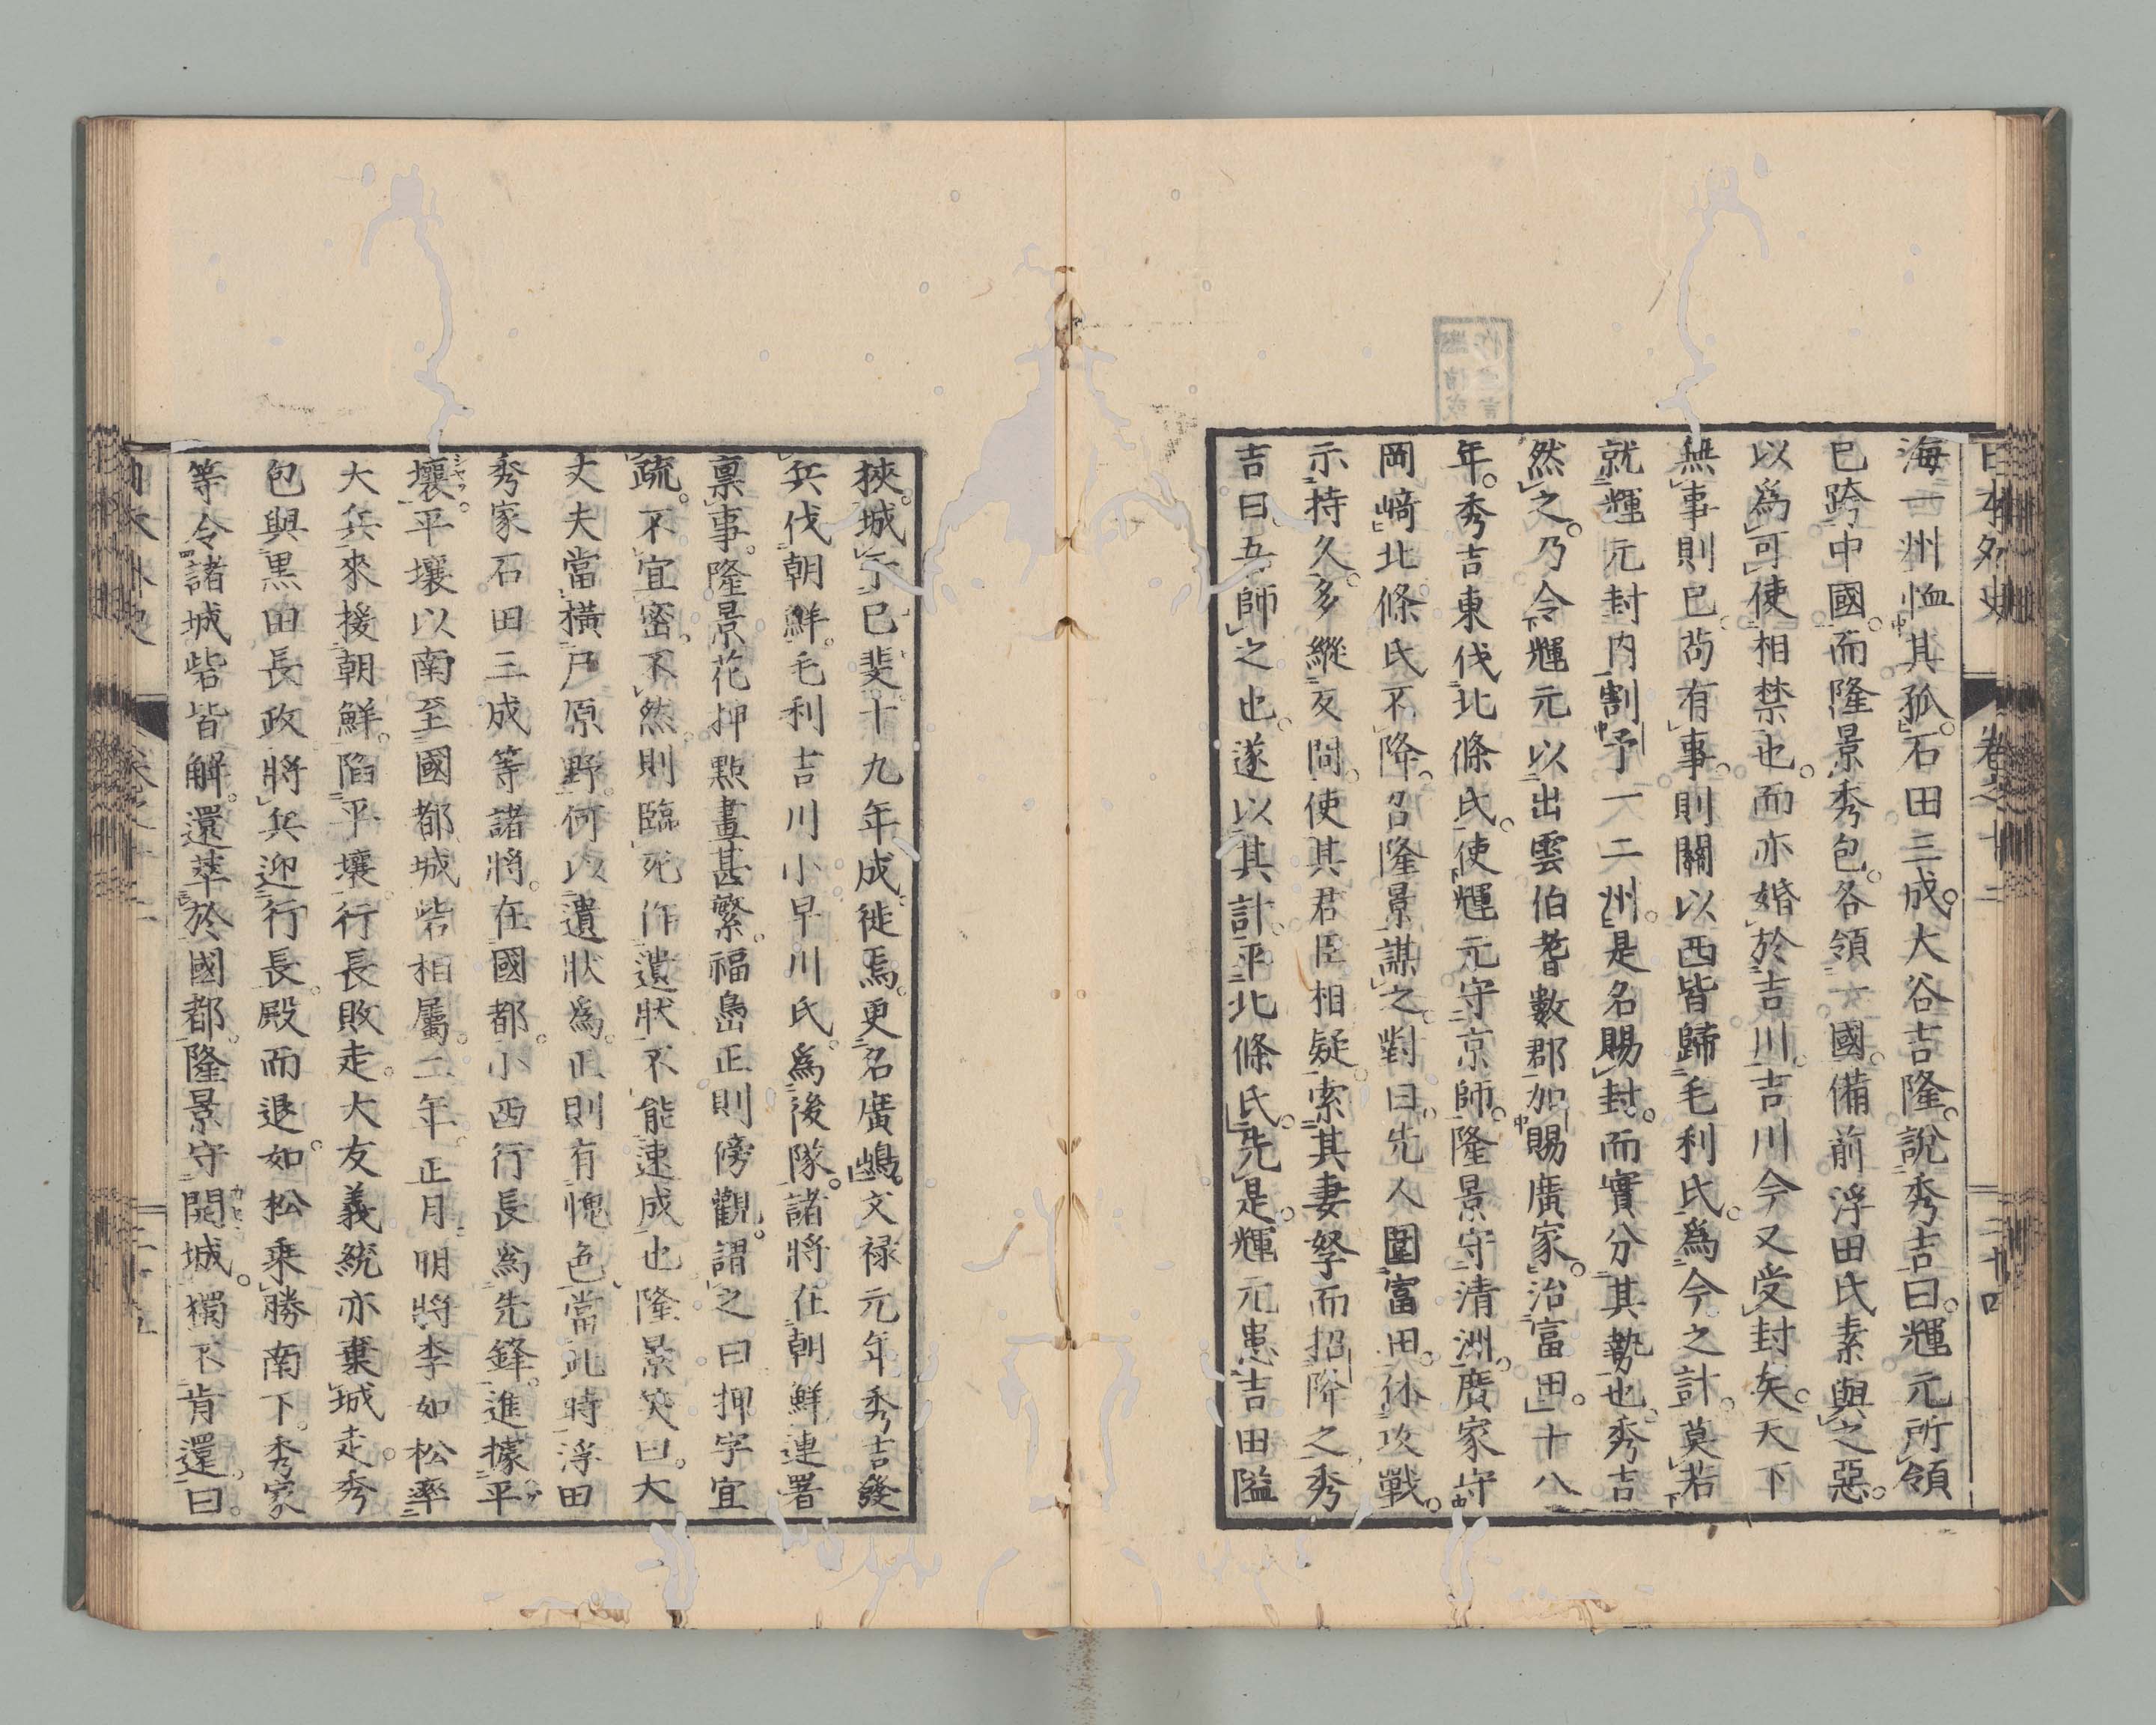 日本外史 卷之十二 二十四
海一州。恤其孤。石田三成。大谷吉隆。說秀吉曰。輝元所領
已跨中國。而隆景秀包。各領一國。備前浮田氏素與之惡。
以爲可使相禁也。而亦婚於吉川。吉川今又受封矣。天下
無事則已。苟有事。則關以西皆歸毛利氏。爲今之計。莫若
就輝元封内割予一二州。是名賜封。而實分其勢也。秀吉
然之。乃令輝元以出雲伯耆數郡加賜廣家。治富田。十八
年。秀吉東伐北條氏。使輝元守京師。隆景守清洲。廣家守
岡﨑。北條氏不降。召隆景謀之。對曰。先人圍富田。休攻戰。
示持久。多縱反間。使其君臣相疑。索其妻孥而招降之。秀
吉曰。吾師之也。遂以其計平北條氏。先是。輝元患吉田隘
狹。城于已斐。十九年成。徙焉。更名廣嶋。文禄元年秀吉發
兵伐朝鮮。毛利吉川小早川氏。爲後隊。諸將在朝鮮連署
稟事。隆景花押點畫甚繁。福島正則傍觀。謂之曰押字宜
疏。不宜密。不然。則臨死作遺狀不能速成也隆景笑曰。大
丈夫當横尸原野。何以遺狀爲。正則有愧色。當此時浮田
秀家石田三成等諸將。在國都。小西行長爲先鋒。進據平
壤。平壤以南至國都。城砦相屬。二年。正月。明將李如松率
大兵來援朝鮮。陷平壤。行長敗走。大友義統亦棄城走。秀
包與黒田長政將兵迎行長。殿而退。如松乘勝南下。秀家
等令諸城砦皆解。還萃於國都。隆景守開城。獨不肯還。曰。